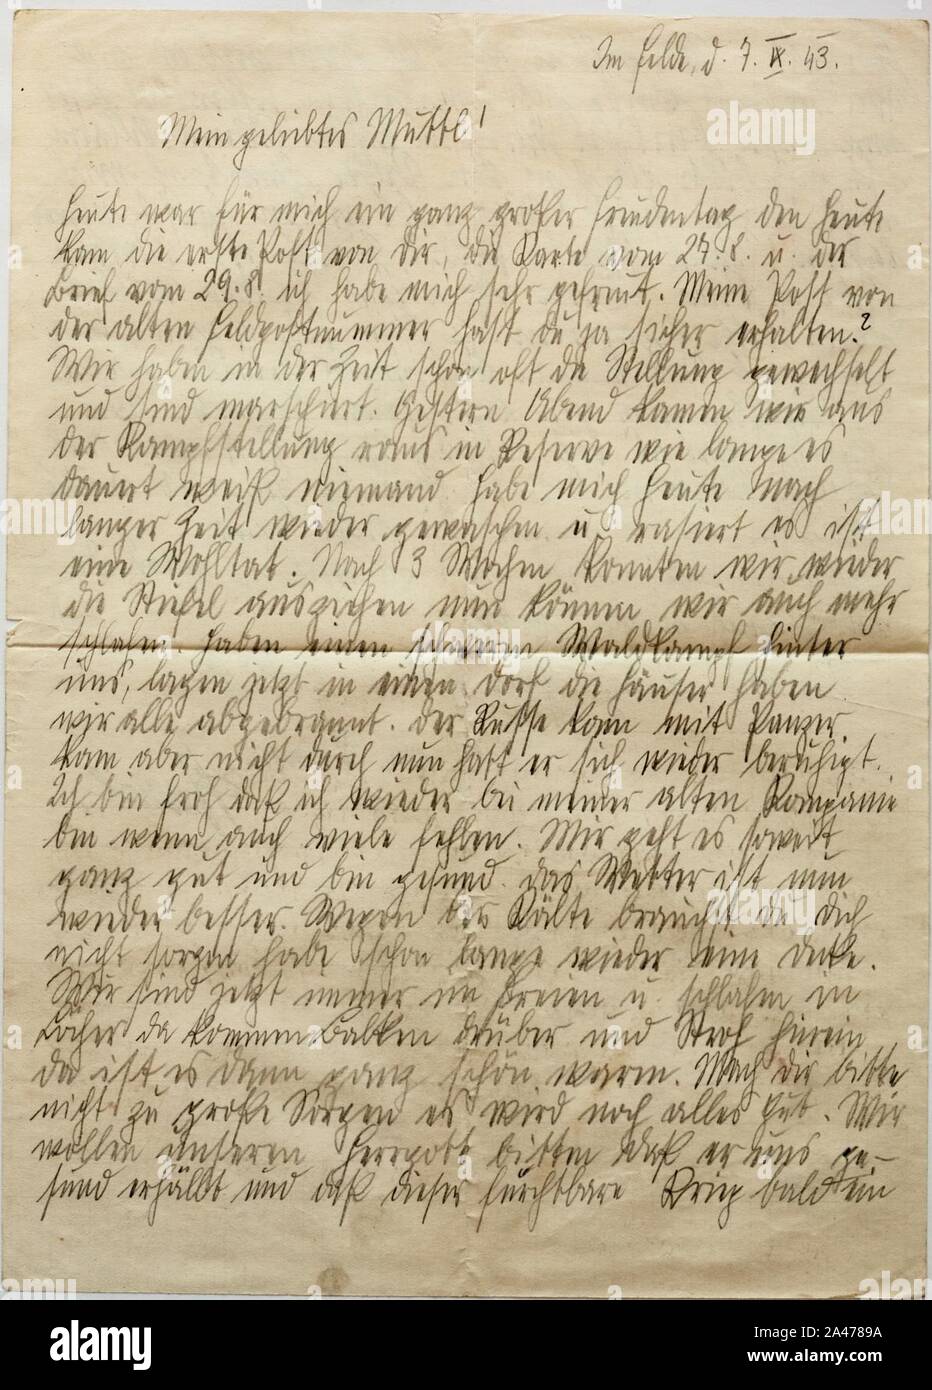 Im Felde, d. 7. IX. 43.
Mein geliebtes Muttl!
Heute war für mich ein ganz großer Freudentag den heute
kam die erste Post von Dir, die Karte vom 27.8. u. der
Brief vom 29.8. ich habe mich sehr gefreut. Meine Post von
der alten Feldpostnummer hast du ja sicher erhalten?
Wir haben in der Zeit schon oft die Stellung gewechselt
und sind marschiert. Gestern Abend kamen wir aus
der Kampfstellung raus in Reserve wie lange es
dauert weiß niemand. Habe mich heute nach
langer Zeit wieder gewaschen u. rasiert es ist
eine Wohltat. Nach 3 Wochen konnten wir wieder
die Stiefel ausziehen nun können wir auch mehr
schlafen. Haben einen schweren Waldkampf hinter
uns, lagen jetzt in einem Dorf die Häuser haben
wir alle abgebrannt. Der Russe kam mit Panzer.
kam aber nicht durch nun hat er sich wieder beruhigt.
Ich bin froh daß ich wieder bei meiner alten Kompanie
bin wenn auch viele fehlen. Mir geht es soweit
ganz gut und bin gesund. Das Wetter ist nun
wieder besser. Wegen der Kälte brauchst du dich
nicht sorgen habe schon lange wieder eine Decke.
Wir sind jetzt immer im Freien u. schlafen in
Löcher da kommen Balken drüber und Stroh hinein
da ist es dann ganz schön warm. Mach dir bitte
nicht zu große Sorgen es wird noch alles gut. Wir
wollen unseren Herrgott bitten daß er uns ge-
sund erhällt und daß dieser furchtbare Krieg bald ein
alamy
Image ID: 2A4789A
www.alamy.com